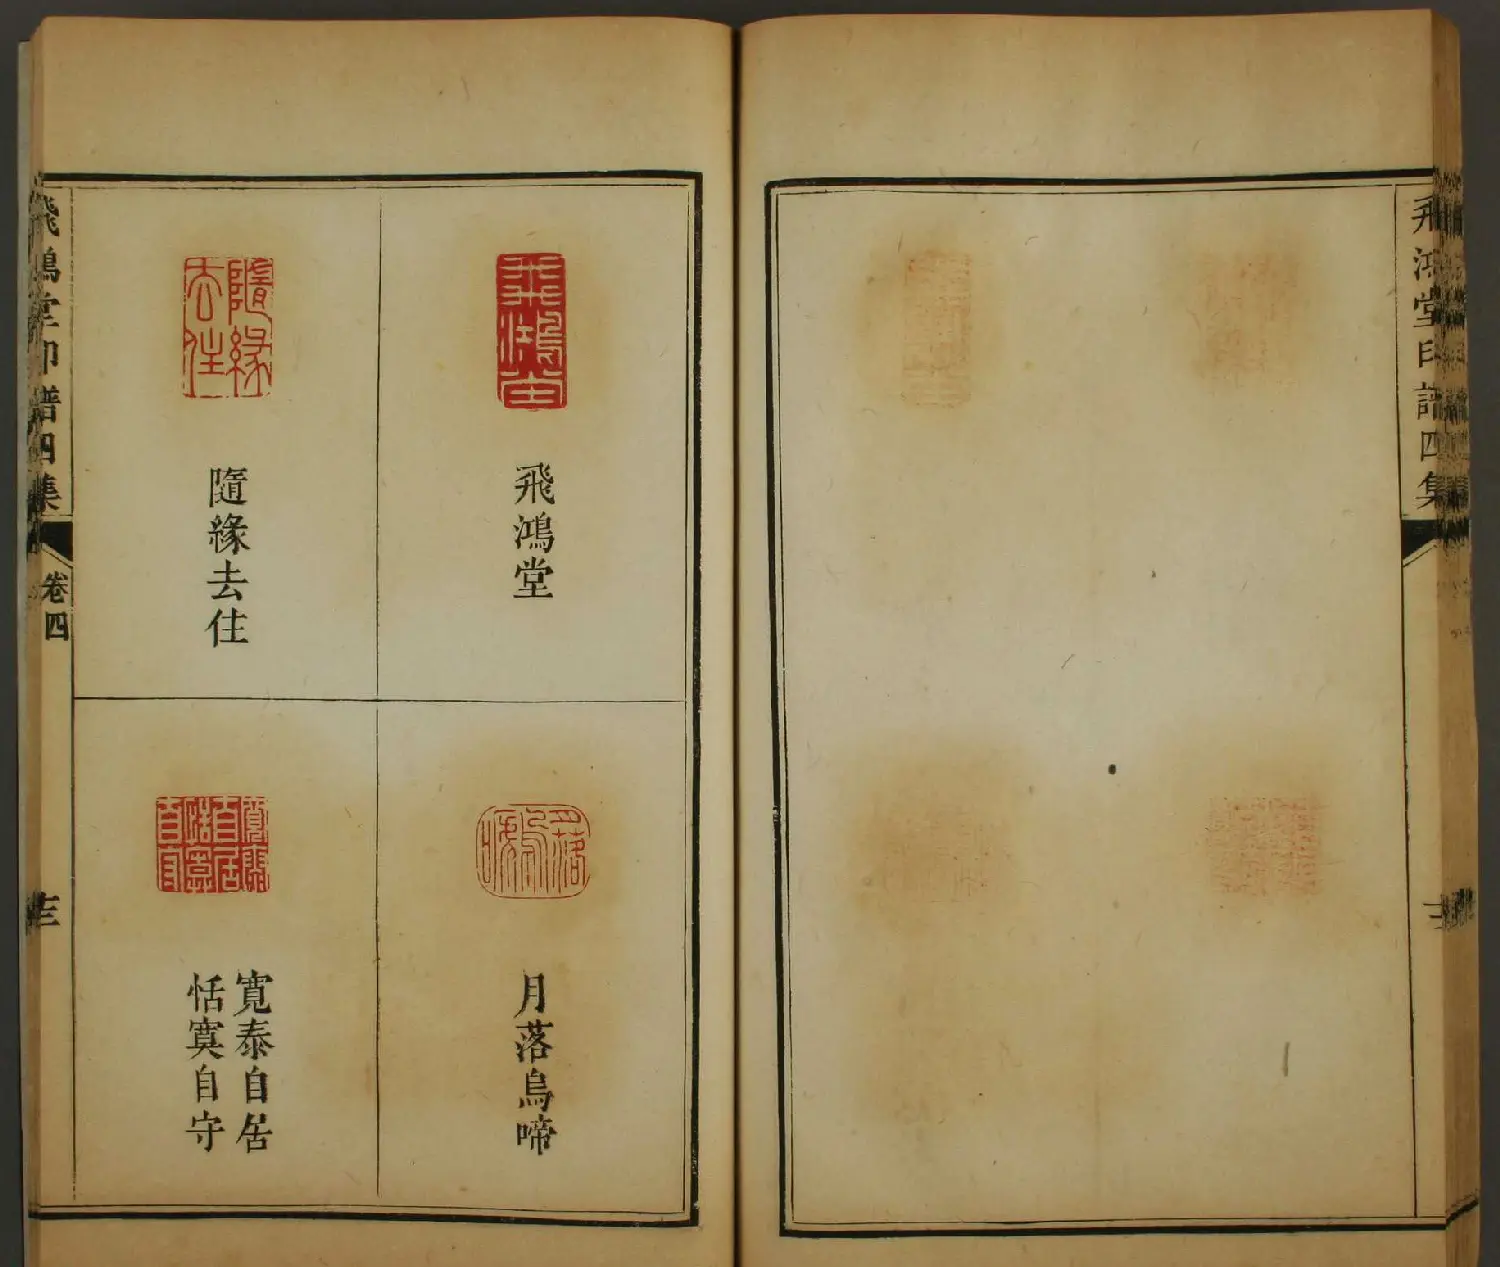 飛鴻堂印譜四集
飛鴻堂
飛鴻堂
隨緣去住
隨緣去住
月落烏啼
月落烏啼
寬泰自居恬寞自守
寬泰自居
恬寞自守
飛鴻堂印譜四集
卷四